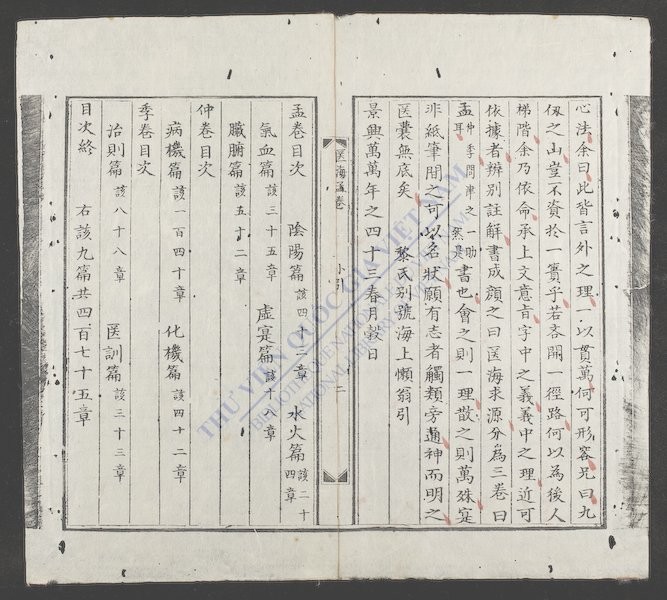 心法余曰此皆言外之理一以貫萬何可形容兄曰九
仭之山豈不資於一簣乎若吝開一徑路何以為後人
梯階余乃依侖承上文意㫖字中之義義中之理近可
依據者辨別註解書成顔之曰医海求源分為三卷曰
孟仲季問津之一助耳然是書也會之則一理散之則萬殊寔
非紙筆間之可以名狀願有志者觸類旁通神而明之
医囊無底矣 黎氏别號海上懶翁引
景興萬萬年之四十三春月穀日
医海孟卷 小引 二
孟卷目次 陰陽篇該四十二章 水火篇該二十四章
氣血篇該三十五章 虛寔篇該十八章
臟腑篇該五十二章
仲卷目次
病機篇該一百四十章 化機篇該四十二章
季卷目次
治則篇該八十八章 医訓篇該三十三章
目次終 右該九篇共四百七十五章
THƯ VIỆN QUỐC GIA VIỆT NAM
BIBLIOTHÈQUE NATIONALE DU VIETNAM
NATIONAL LIBRARY OF VIETNAM